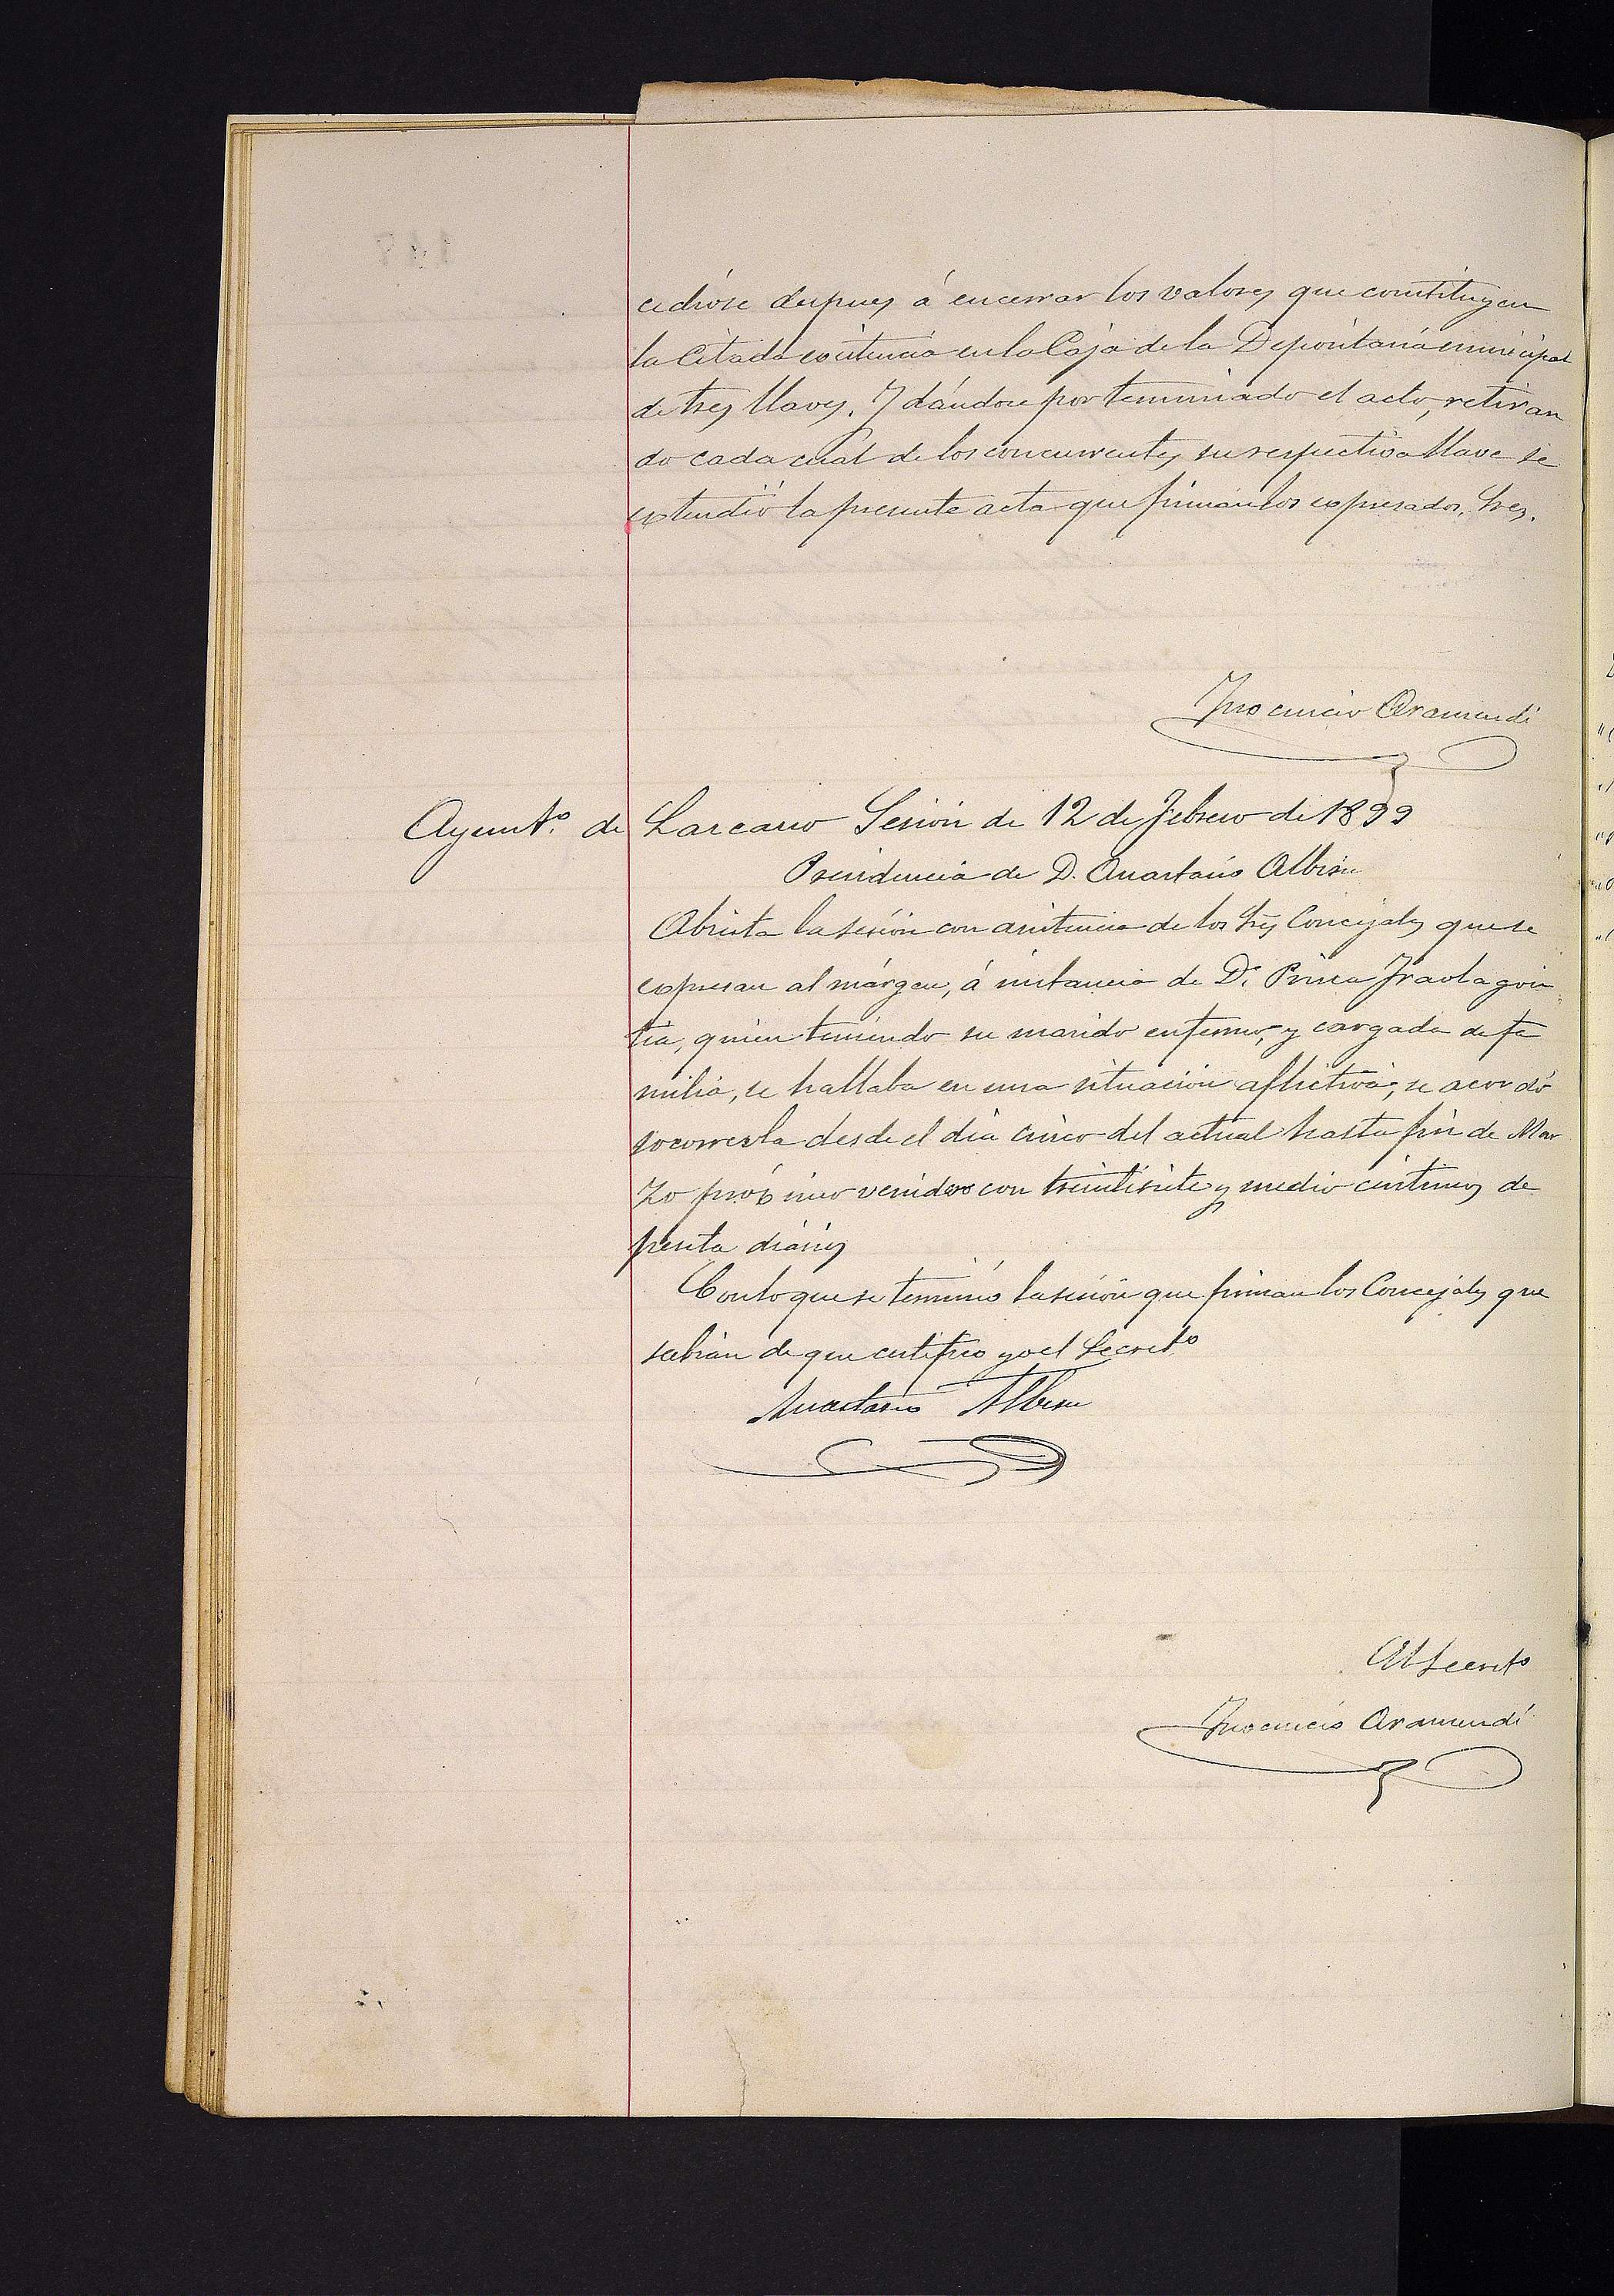 cedióse despues á encerrar los valores que constituyen
la citada existencia en la Caja de la Depositaría municipal
de tres llaves. Y dándose por terminado el acto, retiran
do cada cual de los concurrentes su respectiva llave se
extendió la presente acta que firman los expresados Sres.
Inocencio Aramendi
Ayuntº. de Lazcano Sesión de 12 de Febrero de 1899
Presidencia de D. Anastasio Albisu
Abierta la sesión con asistencia de los Sres Concejales que se
expresan al márgen, á instancia de Dª Prisca Iraola goi
tia, quien teniendo su marido enfermo, y cargada de fa
milia, se hallaba en una situación aflictiva, se acordó
socorrerla desde el dia cinco del actual hasta fin de Mar
zo próximo venidero con treintisiete y medio céntimos de
peseta diarios
Con lo que se terminó la sesión que firman los Concejales que
sabian de que certifico yo el Secretº
Anastasio Albisu
El Secretº
Inocencio Aramendi